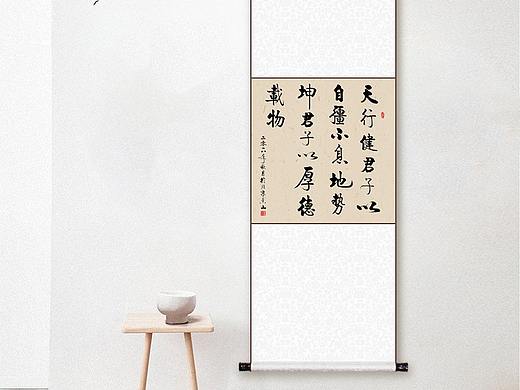 天行健君子以
自彊不息地勢
坤君子以厚德
載物